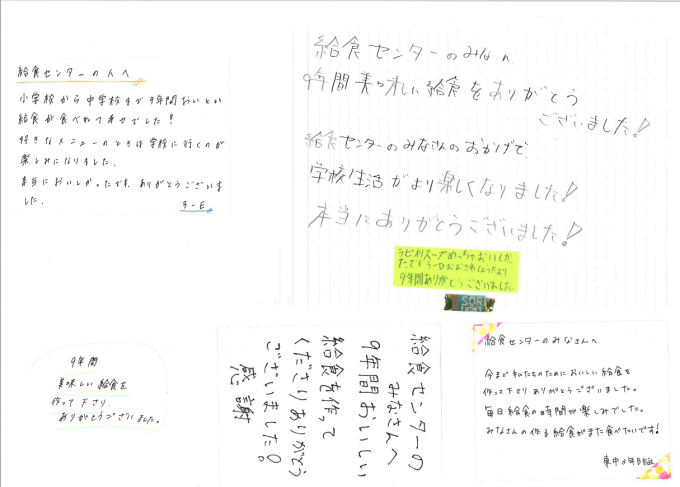 給食センターの人へ
小学校から中学校まで9年間おいしい
給食が食べれて幸せでした！
好きなメニューのときは学校に行くのが
楽しみになりました。
本当においしかったです。ありがとうございま
した。
3-E
給食センターのみなさん
9年間美味しい給食をありがとう
ございました！
給食センターのみなさんのおかげで、
学校生活がより楽しくなりました！
本当にありがとうございました！
ラビオリスープめっちゃおいしかっ
たです
9年間ありがとうございました。
9年間
美味しい給食を
作って下さり
ありがとうございました。
給食センターの
みなさんへ
9年間おいしい
給食を作って
くださりありがとう
ございました。
感謝
給食センターのみなさんへ
今まで私たちのためにおいしい給食を
作って下さりありがとうございました。
毎日給食の時間が楽しみでした。
みなさんの作る給食がまた食べたいです！
東中3年B組